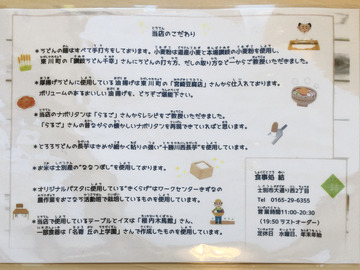 当店のこだわり
★うどんの麺はすべて手打ちをしております。小麦粉は道産小麦と本場讃岐の小麦粉を使用し、
東川町の「讃岐うどん千草」さんにうどんの打ち方、だしの取り方などをご教授いただきました。
★厚揚げうどんに使用している油揚げを東川町の「宮崎豆腐店」さんから仕入れております。
ボリュームのあるおいしい油揚げを、どうぞご堪能下さい。
★当店のナポリタンは「ぐるご」さんからレシピをご教授いただきました。
「ぐるご」さんの昔ながらの懐かしいナポリタンを再現できていればと思います。
★とろろうどんの長芋はきめが細かく粘りの強い“十勝川西長芋”を使用しています。
★お米は士別産の“ななつぼし”を使用しております。
★オリジナルパスタに使用している“きくらげ”はワークセンターきずなの
農作業をおこなう活動班で栽培したものを使用しています。
★当店で使用しているテーブルとイスは「稚内木馬館」さん、
一部食器は「名寄 丘の上学園」さんで作成したものを使用しています。
食事処
士別市大通り西2丁目
Tel 0165-29-6355
営業時間11:00-20:30
(19:50 ラストオーダー)
定休日 水曜日、年末年始